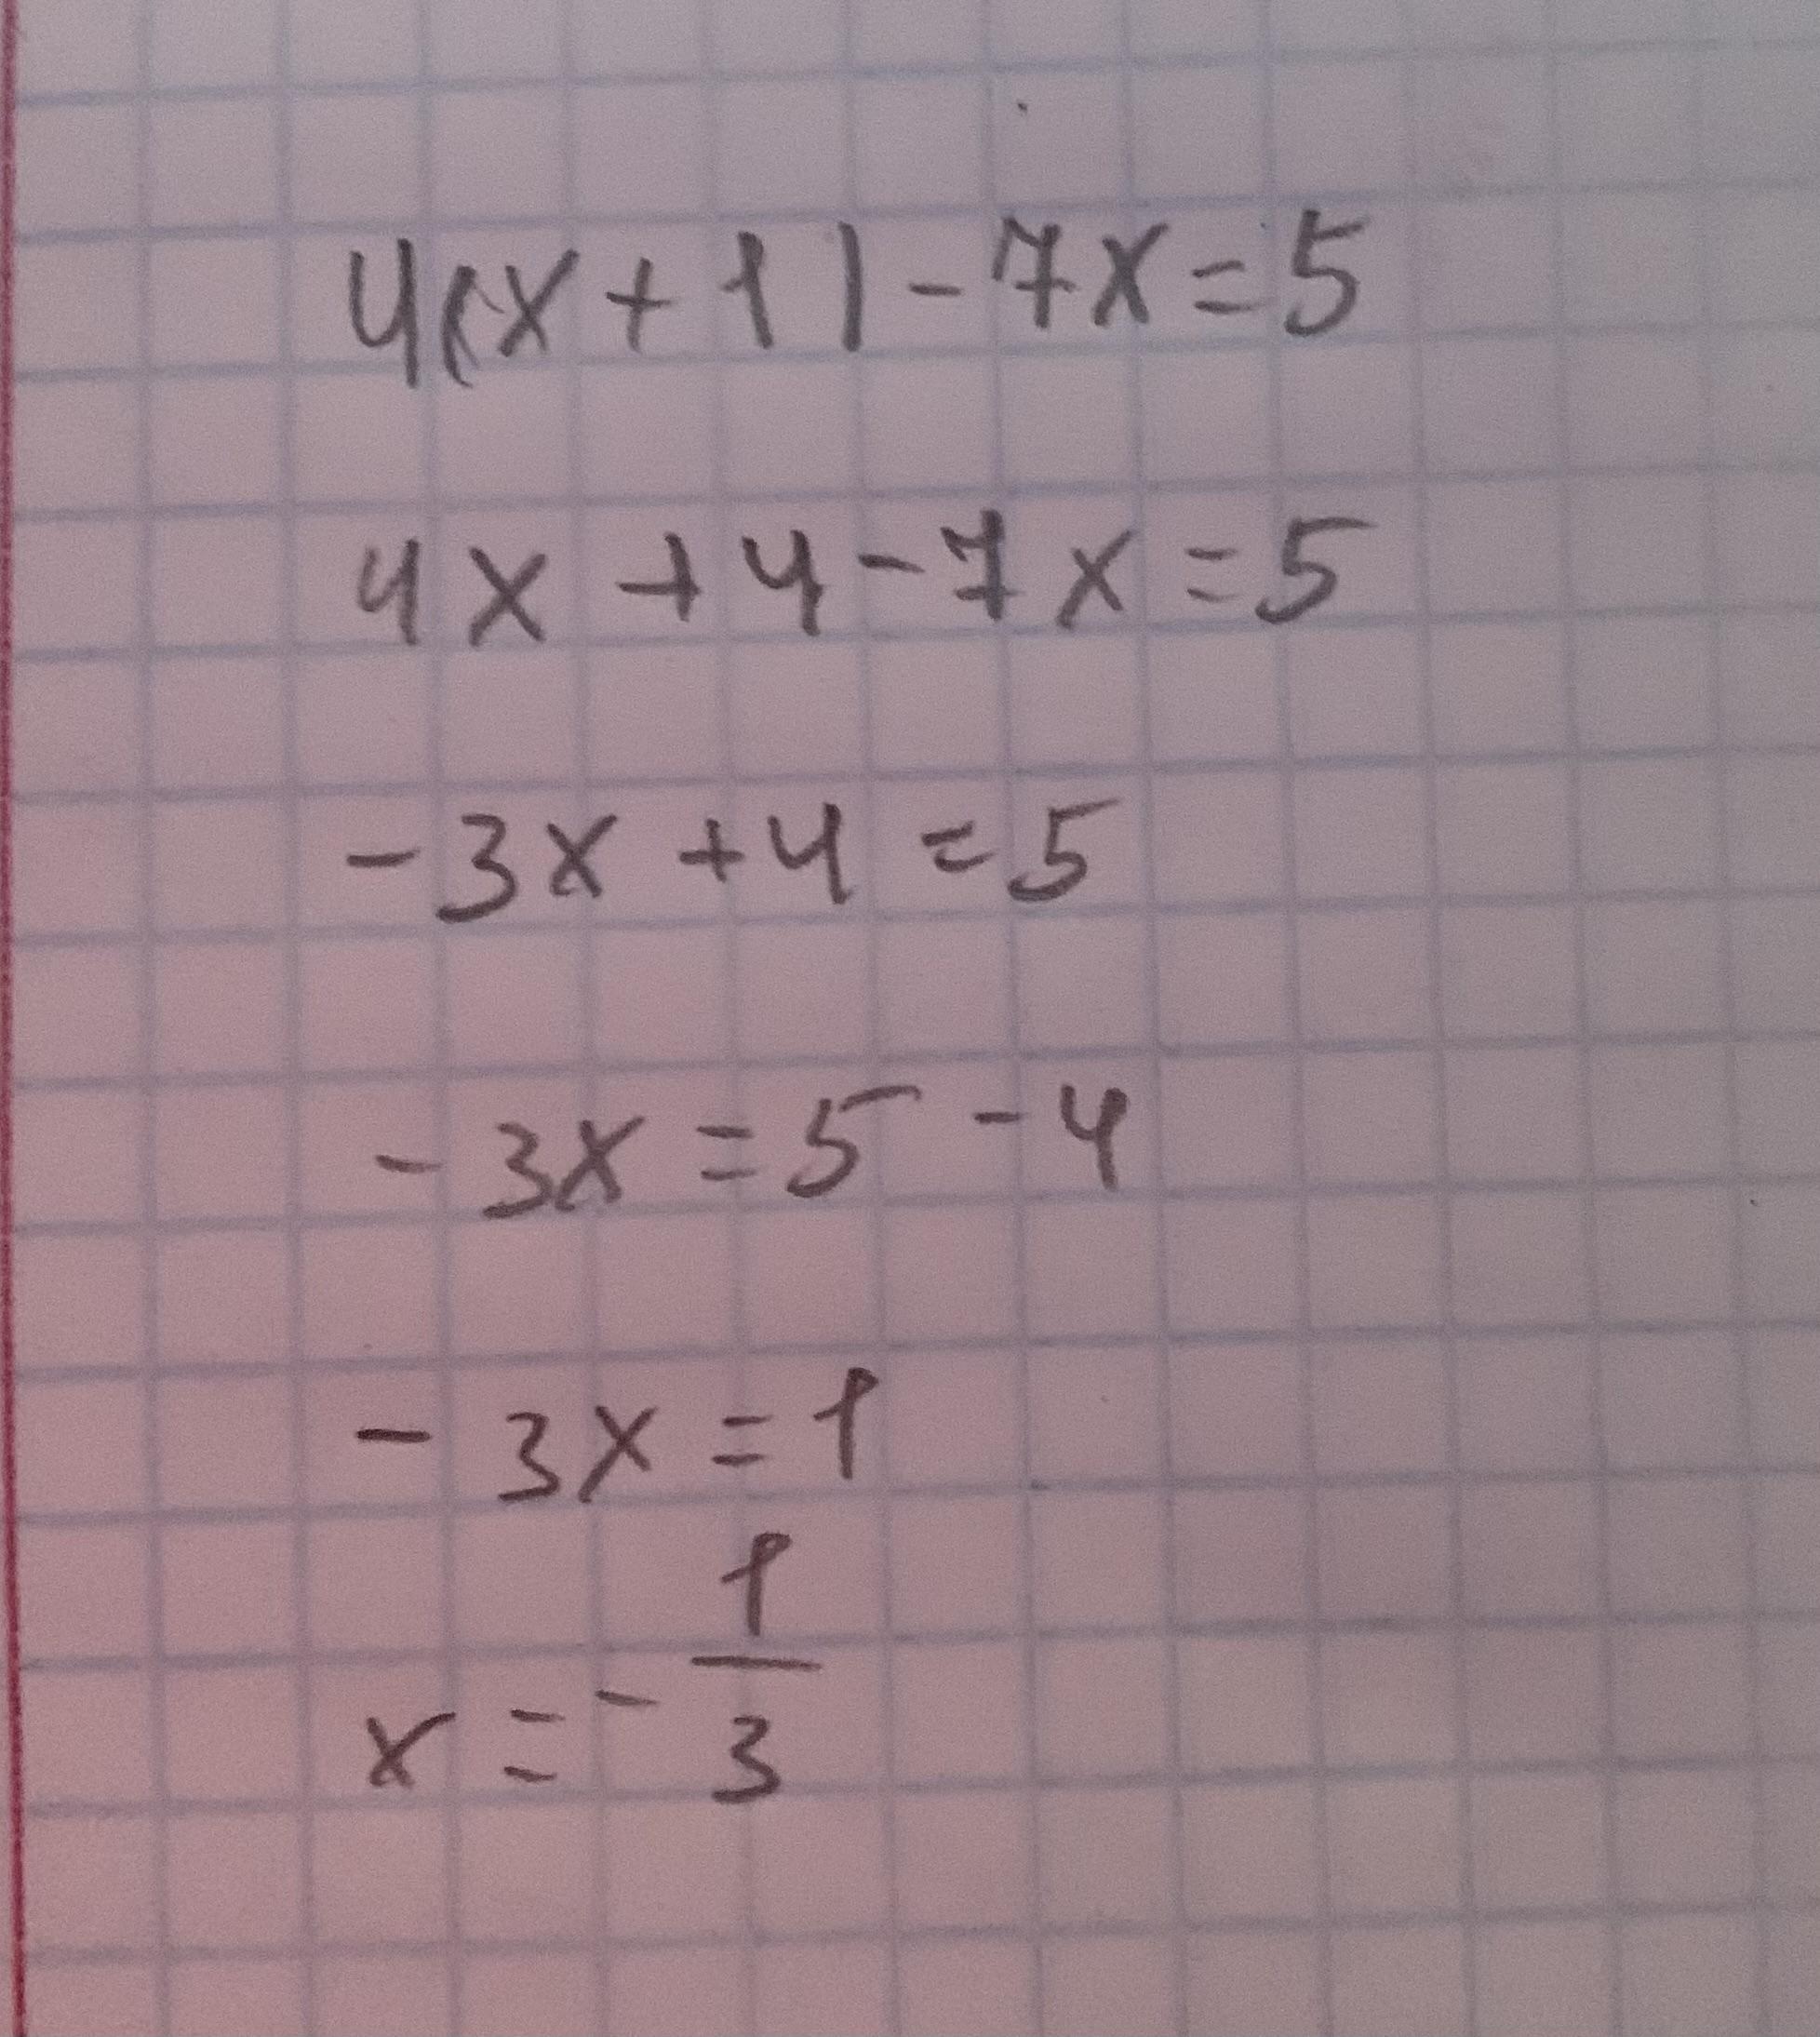 4(x+1)-7x=5
4x+4-7x=5
-3x+4=5
-3x=5-4
-3x=1
x=-1/3